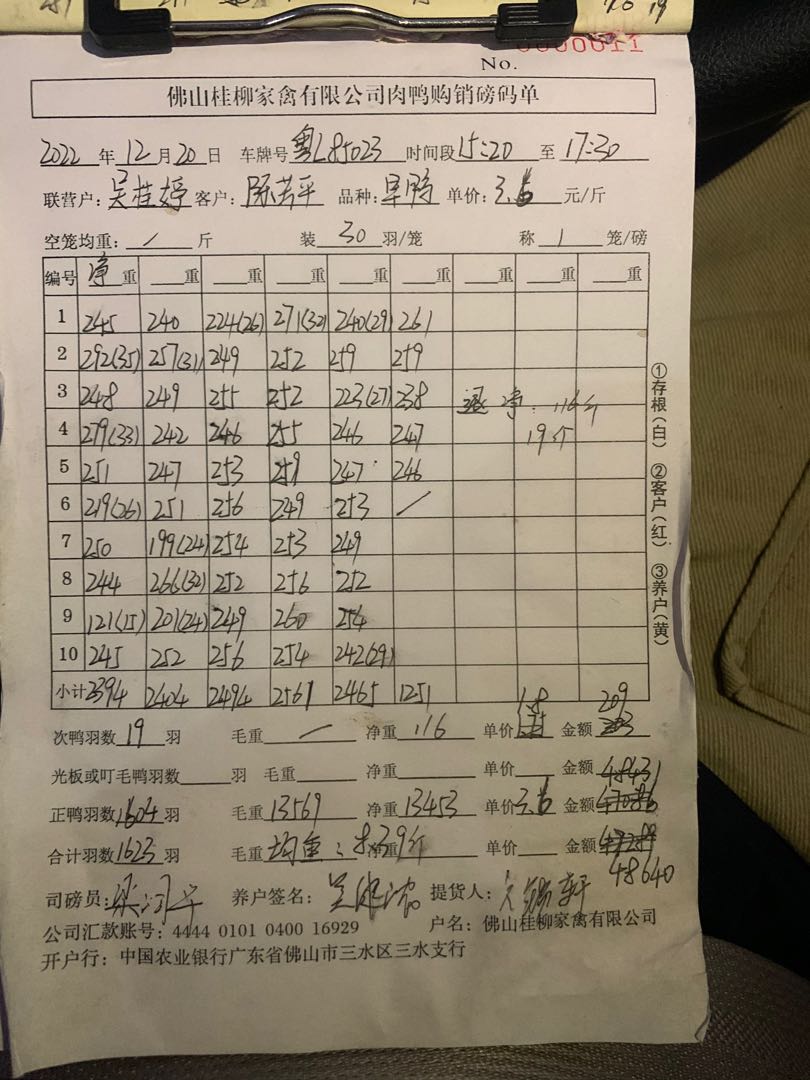 No. 0000011
佛山桂柳家禽有限公司肉鸭购销磅码单
2022 年 12 月 20 日 车牌号 粤L85023 时间段 15:20 至 17:30
联营户: 吴桂婷 客户: 陈芳平 品种: 单价: 3.6 元/斤
空笼均重: / 斤 装 30 羽/笼 称 1 笼/磅
编号 净重 重 重 重 重 重 重 重 重
1 245 240 224(26) 271(32) 240(29) 261
2 292(35) 257(31) 249 252 259 259
3 248 249 255 252 223(27) 238 净: 116斤
4 279(33) 242 246 255 246 247 19只
5 251 247 253 259 247 246
6 219(26) 251 256 249 253 /
7 250 199(24) 254 253 249
8 244 266(32) 252 256 252
9 121(15) 201(24) 249 260 254
10 245 252 256 254 242(29)
小计 2394 2404 2494 2561 2465 1251
次鸭羽数 19 羽 毛重 / 净重 116 单价 1.8 金额 209
光板或叮毛鸭羽数 羽 毛重 净重 单价 金额
正鸭羽数 1604 羽 毛重 13569 净重 13453 单价 3.6 金额 48431
合计羽数 1623 羽 毛重 均重: 8.39斤 净重 单价 金额 48640
司磅员: 养户签名: 提货人:
公司汇款账号: 4444 0101 0400 16929 户名: 佛山桂柳家禽有限公司
开户行: 中国农业银行广东省佛山市三水区三水支行
①存根(白) ②客户(红) ③养户(黄)